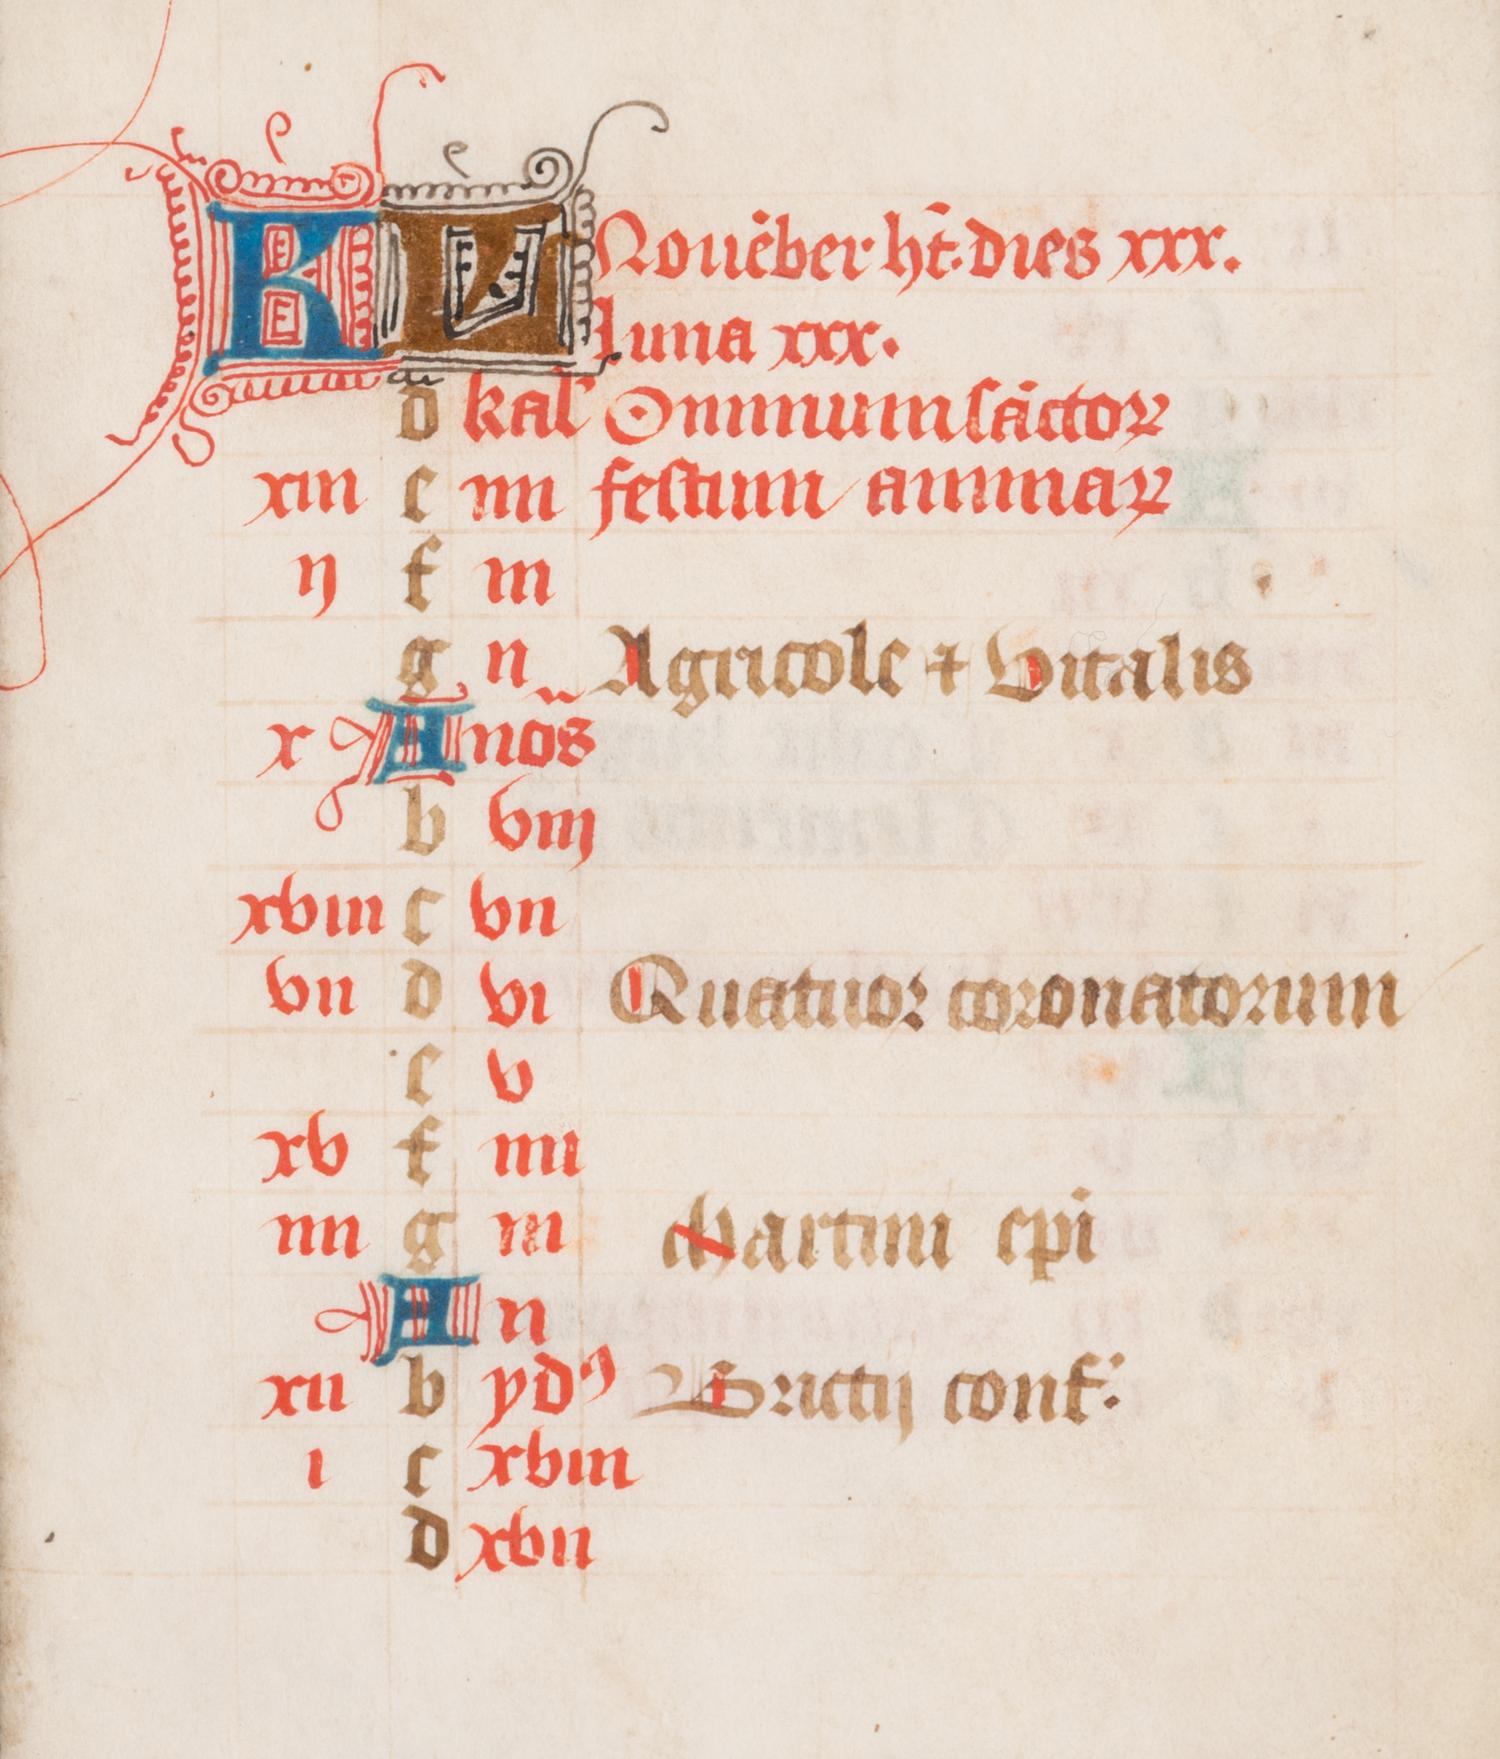 KL Nouẽber hr̃ dies xxx.
Luna xxx.
d kal' Omnium sãctoꝝ
xiii e iiii festum animaꝝ
ij f iii
g ii Agricole ⁊ vitalis
x A nõs
b viij
xviii c vii
vii d vi Quatuor coronatorum
e v
xv f iiii
iiii g iii Martini epĩ
A ii
xii b ydꝰ Brictij conf:
i c xviii
d xvii